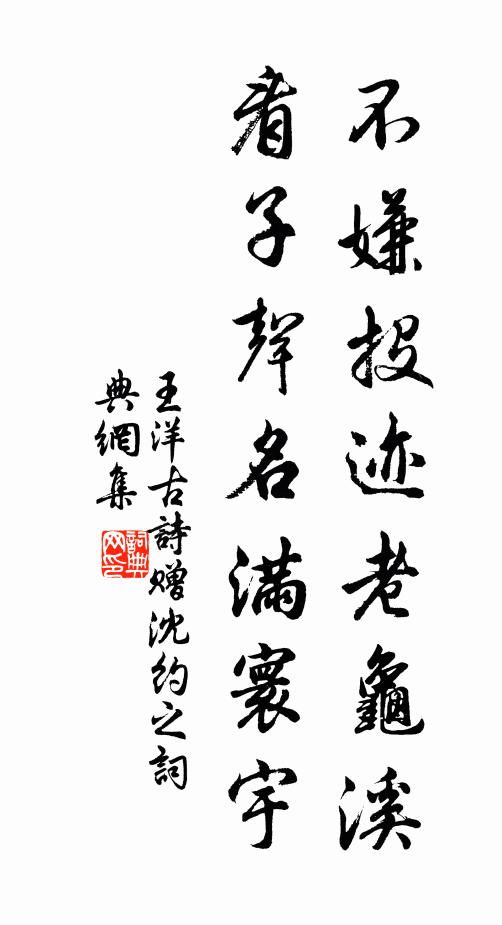 不嫌投迹老龜溪
看子聲名滿寰宇
王洋古詩贈沈約之詞
典網集
詞典
网印